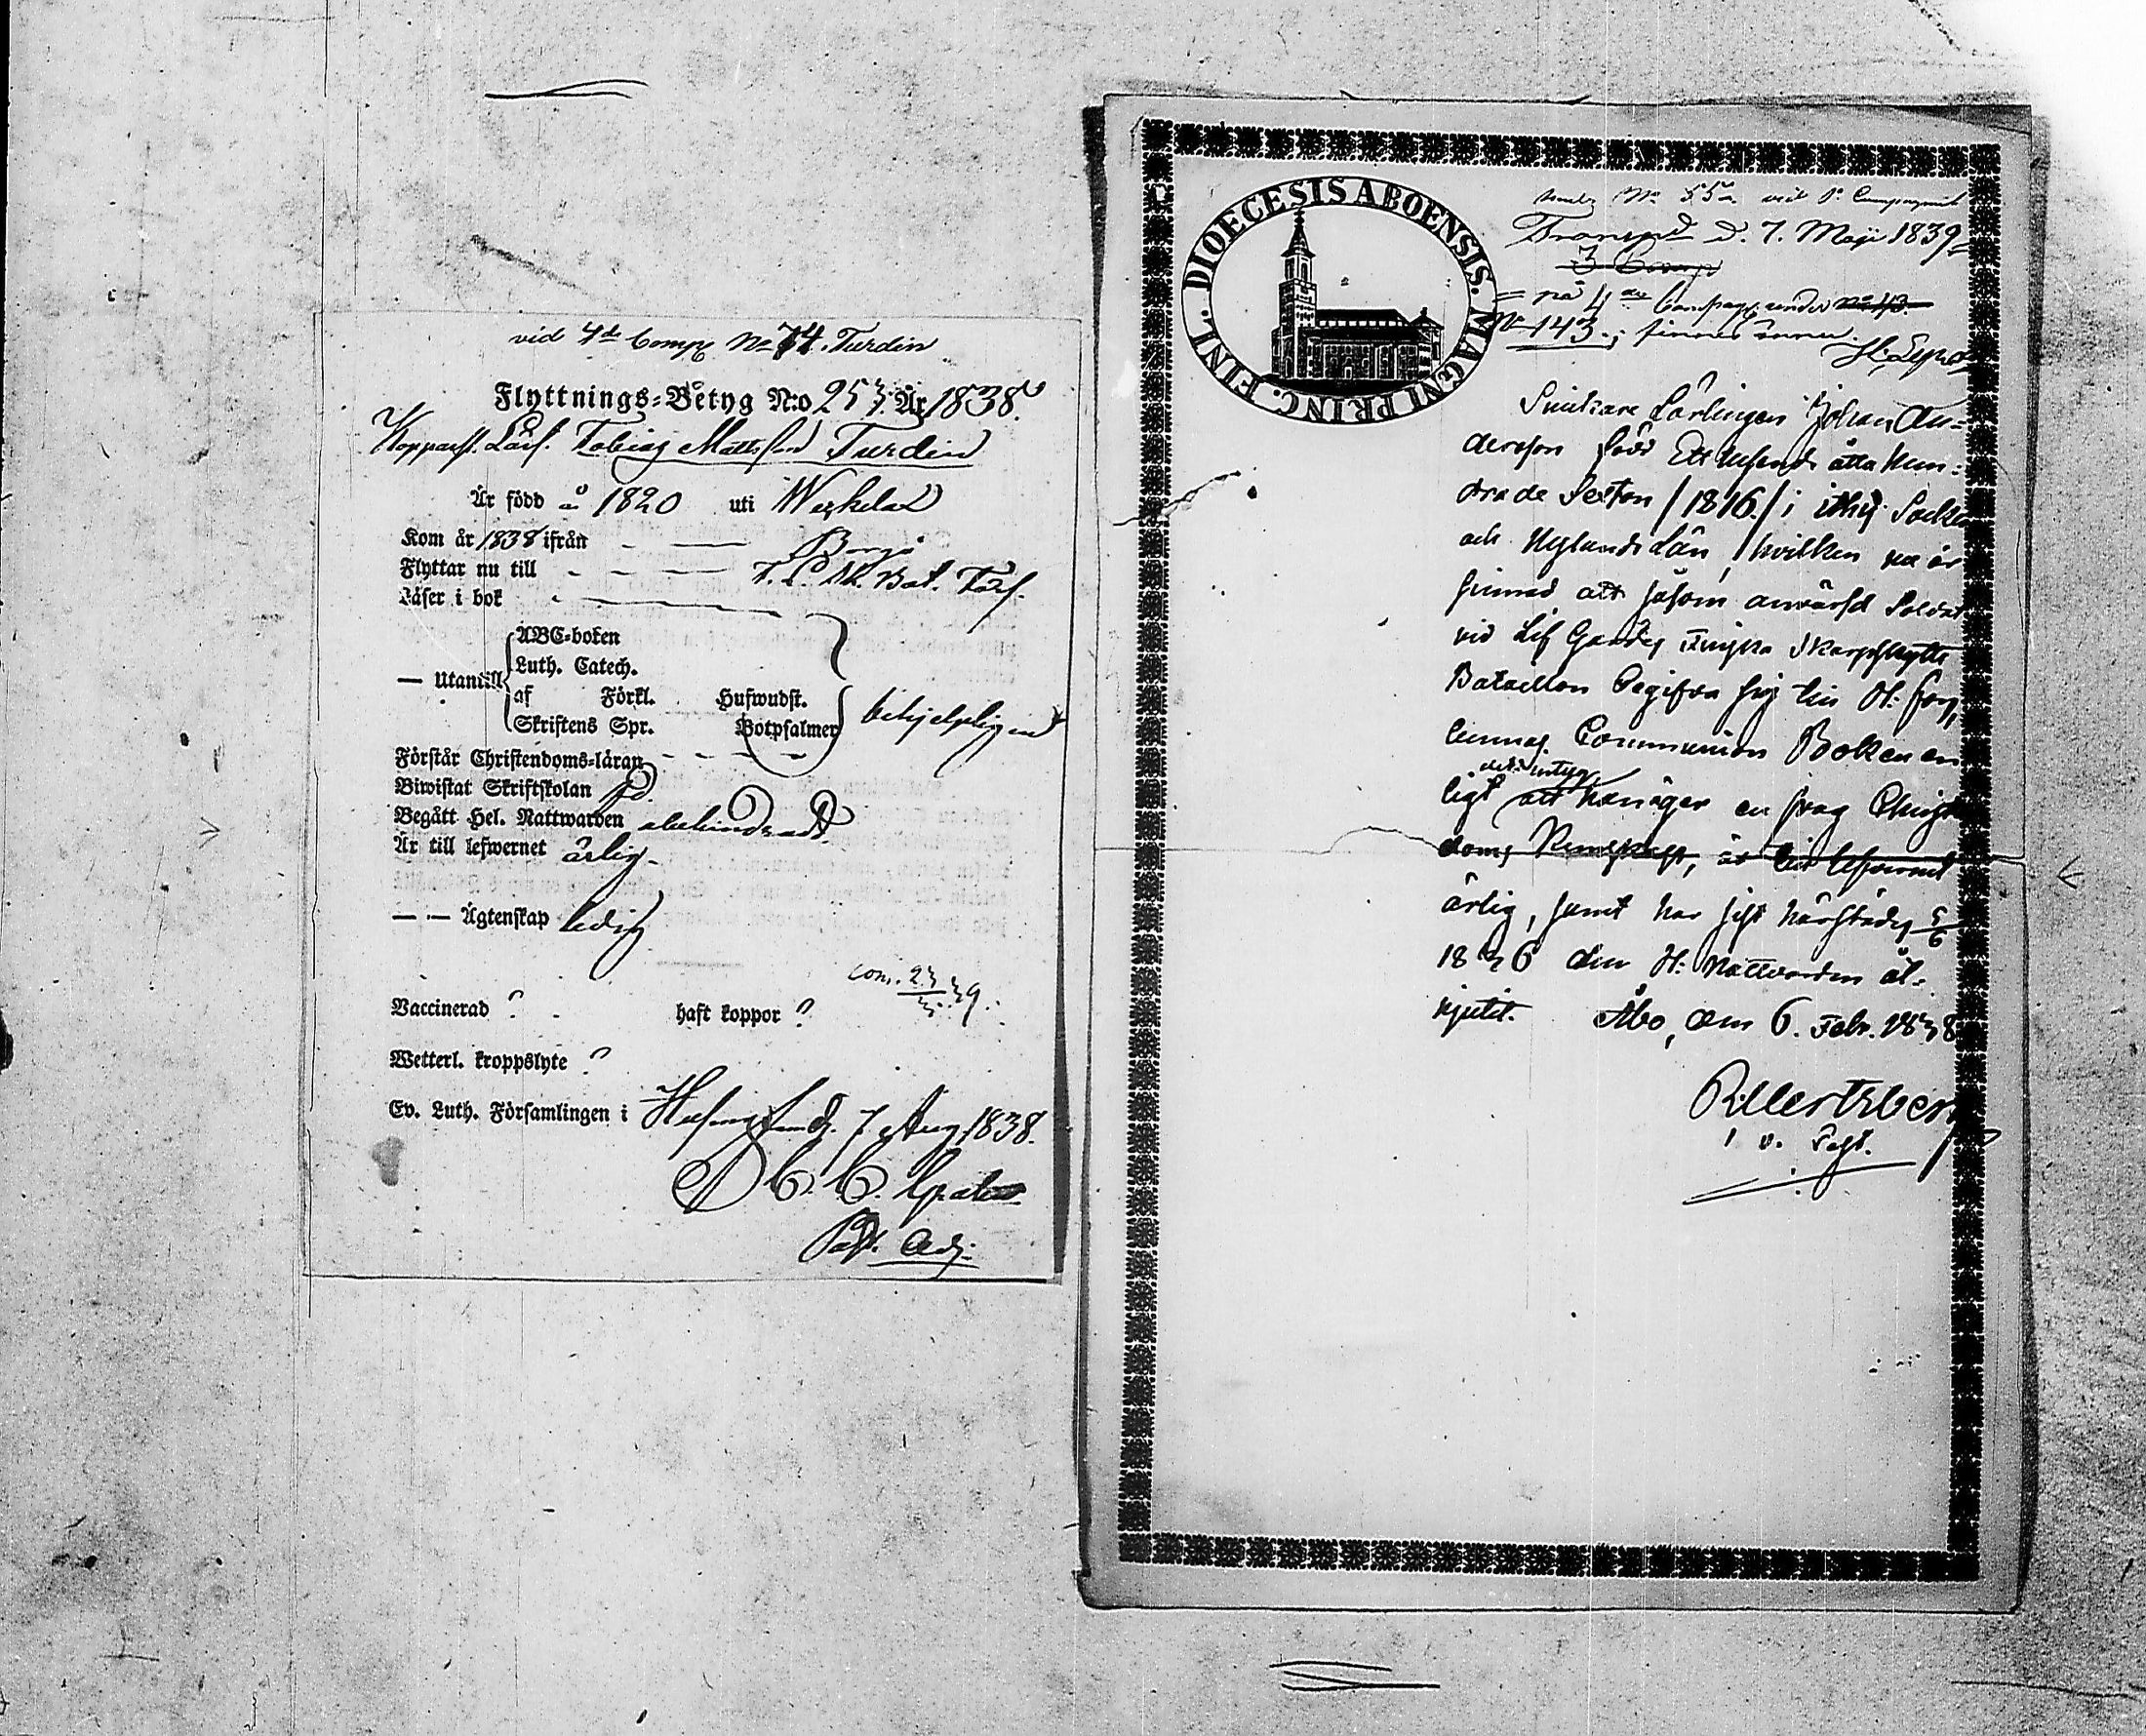 vid 4de Comp No 74 Turdin
Flyttnings-Betyg N:o 253. År 1838.
Kopparsl. Lärl. Tobias Mattsson Turdin
Är född å 1820 uti
Kom år 1838 ifrån Borgå
Flyttar nu till F. L. Sk. Bat. Förs.
Läser i bok
— Utantill
ABC-boken
Luth. Catech.
af Förkl. Hufwudst.
Skriftens Spr. Botpsalmer
behjelpligen
Förstår Christendoms-läran
Biwistat Skriftskolan
Begått Hel. Nattwarden obehindradt
Är till lefwernet ärlig.
— — Ägtenskap ledig
com. 23/3. 39.
Vaccinerad ? haft koppor ?
Wetterl. kroppslyte ?
Ev. Luth. Församlingen i Helsingfors d. 7 Aug 1838.
Past. Adj.
DIOECESIS ABOENSIS. MAGNI PRINC. FINL.
No 55 vid Compagniet
Transp d. 7. Maji 1839
3 Comp
= på 4de Compag under no 43.
No 143.; finnes
Snickare Lärlingen Johan An=
dersson född Ett tusende åtta hun=
drade Sexton /1816/ i Socken
och Nylands Län, hvilken nu är
sinnad att såsom anvärfd Soldat
vid Lif Gardes Finska Skarpskytte
Bataillon begifva sig till H:fors,
lemnas Communion Boken en
ligt det intyg
att han äger en svag Christen
doms Kunskap, är till lefvernet
ärlig, samt har sist härstädes 5/6
1836 den H: Nattvarden åt-
njutit. Åbo, den 6. Febr. 1838
v. Past.